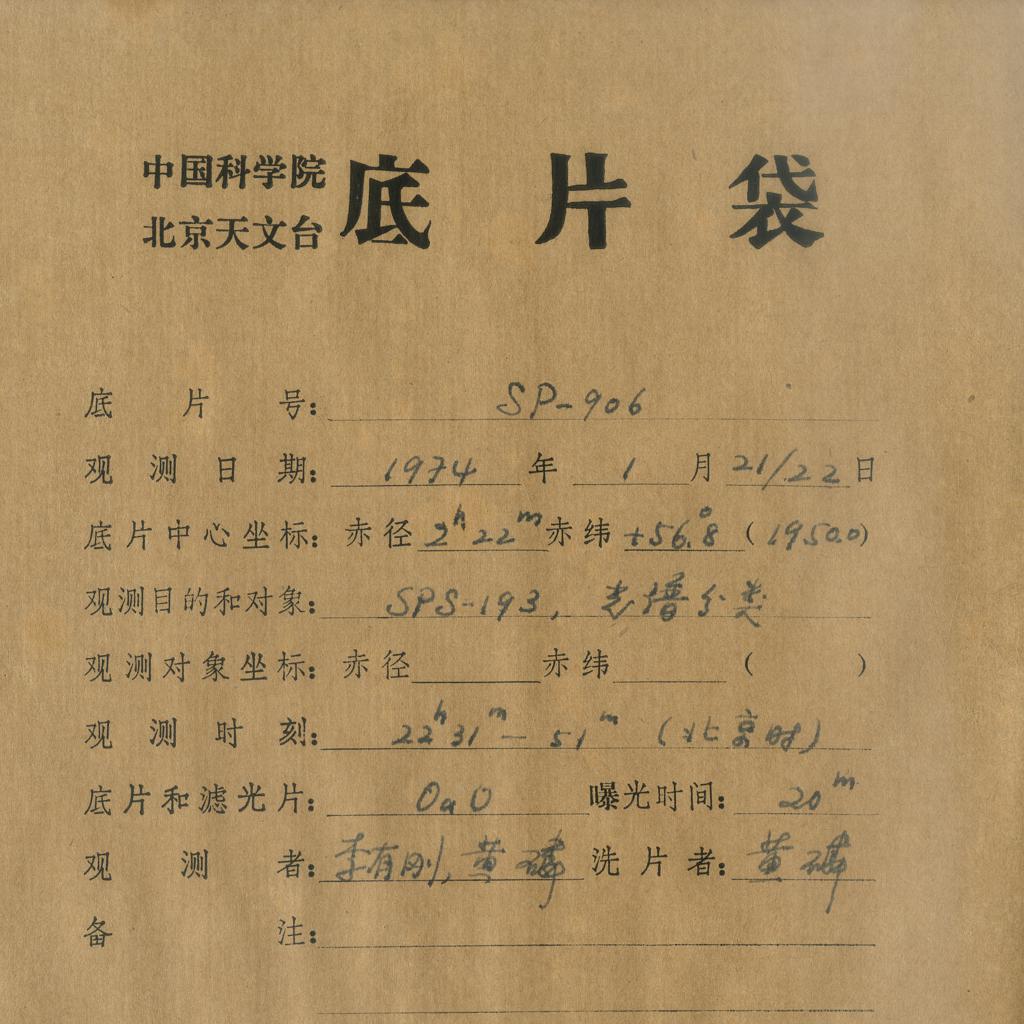 中国科学院
北京天文台
底片袋
底片号: SP-906
观测日期: 1974 年 1 月 21/22 日
底片中心坐标: 赤径 2h 22m 赤纬 +56.°8 (1950.0)
观测目的和对象: SPS-193, 光谱分类
观测对象坐标: 赤径 赤纬 ( )
观测时刻: 22h31m — 51m (北京时)
底片和滤光片: OaO 曝光时间: 20m
观测者: 李有刚, 黄磷 洗片者: 黄磷
备注: